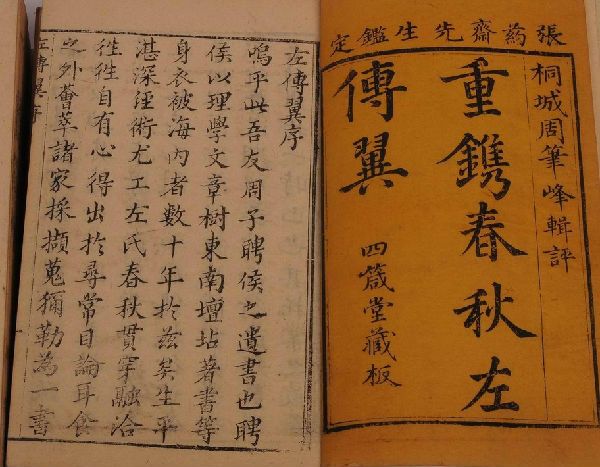 張葯齋先生鑑定
桐城周筆峰輯評
重鐫春秋左
傳翼
四箴堂藏板
左傳翼序
嗚乎此吾友周子聘侯之遺書也聘
侯以理學文章樹東南壇坫著書等
身衣被海內者數十年於兹矣生平
湛深經術尤工左氏春秋貫穿融洽
徃徃自有心得出於尋常目論耳食
之外薈萃諸家採擷蒐獮勒為一書
左傳翼序